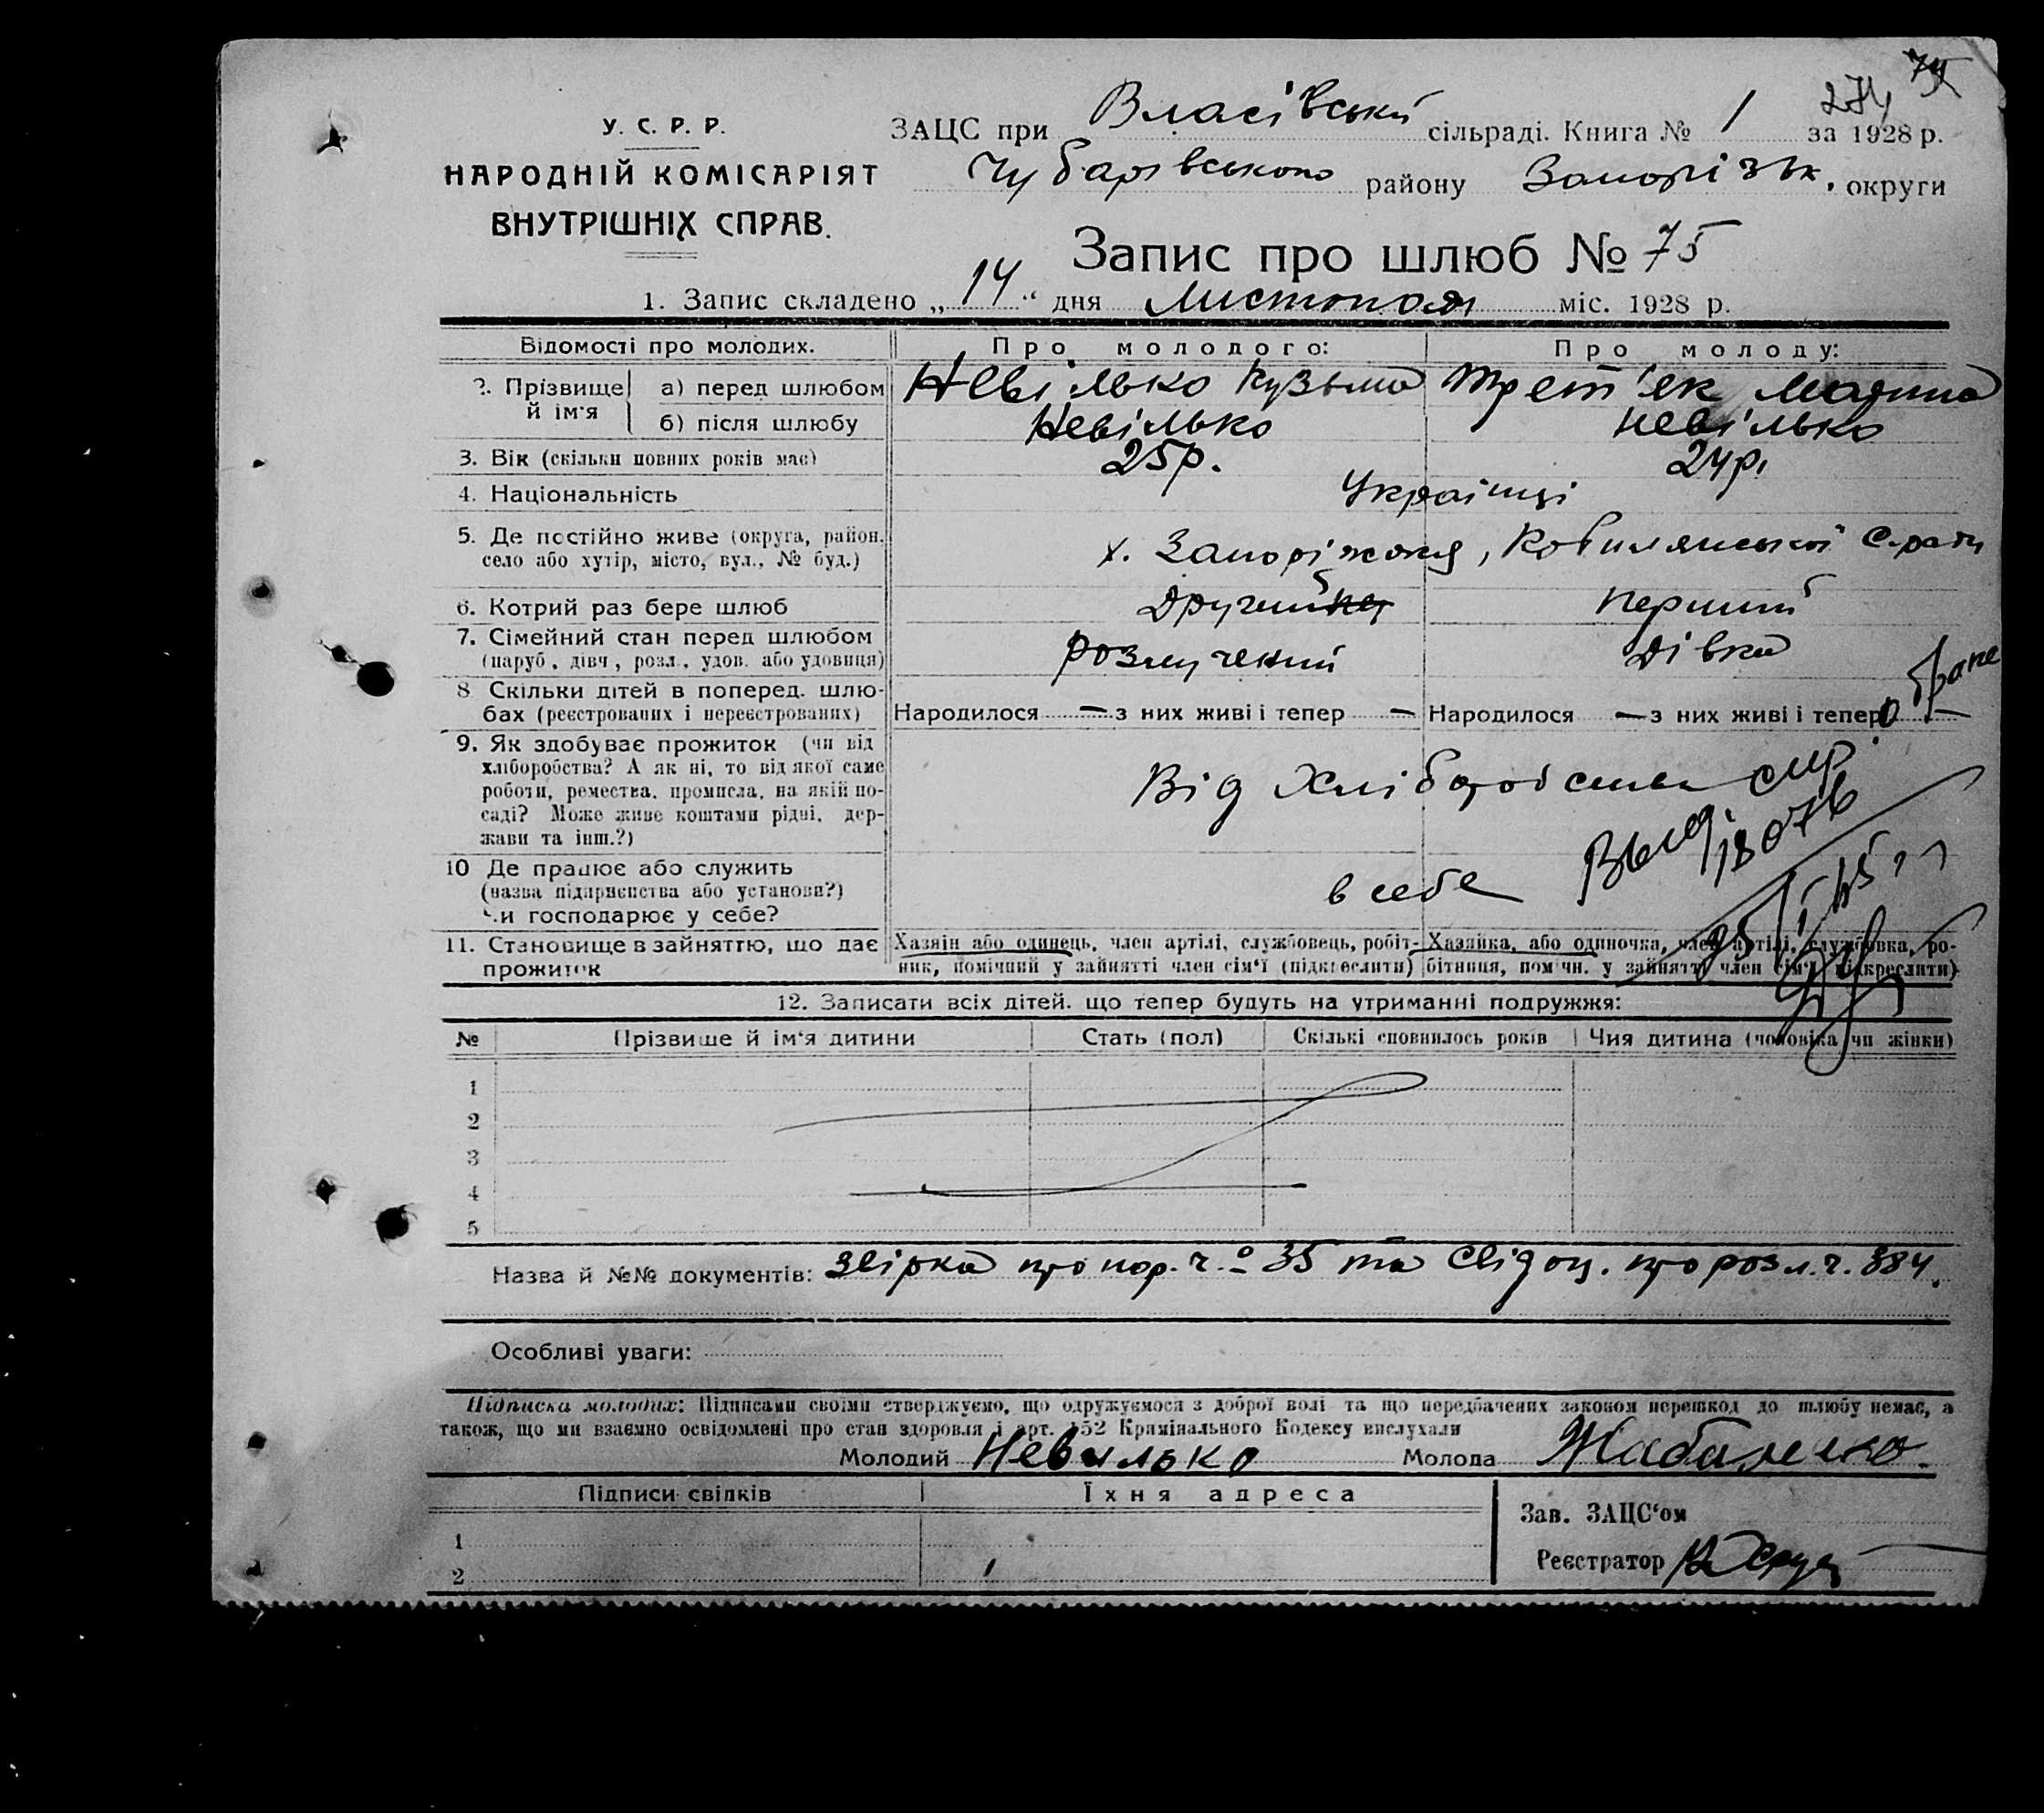 274
У. С. Р. Р.
НАРОДНІЙ КОМІСАРІЯТ
ВНУТРІШНІХ СПРАВ.
ЗАЦС при Власівській сільраді. Книга № 1 за 1928 р.
Чубарівського району Запоріжк. округи
Запис про шлюб № 75
1. Запис складено „14“ дня Листопада міс. 1928 р.
Відомості про молодих. Про молодого: Про молоду:
2. Прізвище й ім'я а) перед шлюбом Невілько Кузьма Трет'як Марина
б) після шлюбу Невілько Невілько
3. Вік (скільки повних років має) 25р. 24р.
4. Національність Українці
5. Де постійно живе (округа, район, х. Запоріжжя, Кобилянської С-ради
село або хутір, місто, вул., № буд.)
6. Котрий раз бере шлюб Другий перший
7. Сімейний стан перед шлюбом розлучений дівка
(паруб., дівч., розл., удов. або удовиця)
8. Скільки дітей в поперед. шлю-
бах (реєстрованих і нереєстрованих) Народилося — з них живі і тепер — Народилося — з них живі і тепер —
9. Як здобуває прожиток (чи від
хліборобства? А як ні, то від якої саме
роботи, ремества, промисла, на якій по-
саді? Може живе коштами рідні, дер-
жави та інш.?)
Від Хліборобства
о браке
Выд.
10 Де працює або служить
(назва підприємства або установи?)
чи господарює у себе?
в себе
11. Становище в зайняттю, що дає
прожиток
Хазяїн або одинець, член артілі, службовець, робіт-
ник, помічний у зайнятті член сім'ї (підкреслити)
Хазяйка, або одиночка, член артілі, службовка, ро-
бітниця, помічн. у зайнятті член сім'ї (підкреслити)
12. Записати всіх дітей, що тепер будуть на утриманні подружжя:
№ Прізвище й ім'я дитини Стать (пол) Скількі сповнилось років Чия дитина (чоловіка чи жінки)
1
2
3
4
5
Назва й №№ документів: Звірка про нар. ч. 35 та Свідоц. про розл. ч. 384.
Особливі уваги:
Підписка молодих: Підписами своїми стверджуємо, що одружуємося з доброї волі та що передбачених законом перешкод до шлюбу немає, а
також, що ми взаємно освідомлені про стан здоровля і арт. 152 Кримінального Кодексу вислухали
Молодий Невилько Молода
Підписи свідків Їхня адреса
1
2
Зав. ЗАЦС'ом
Реєстратор